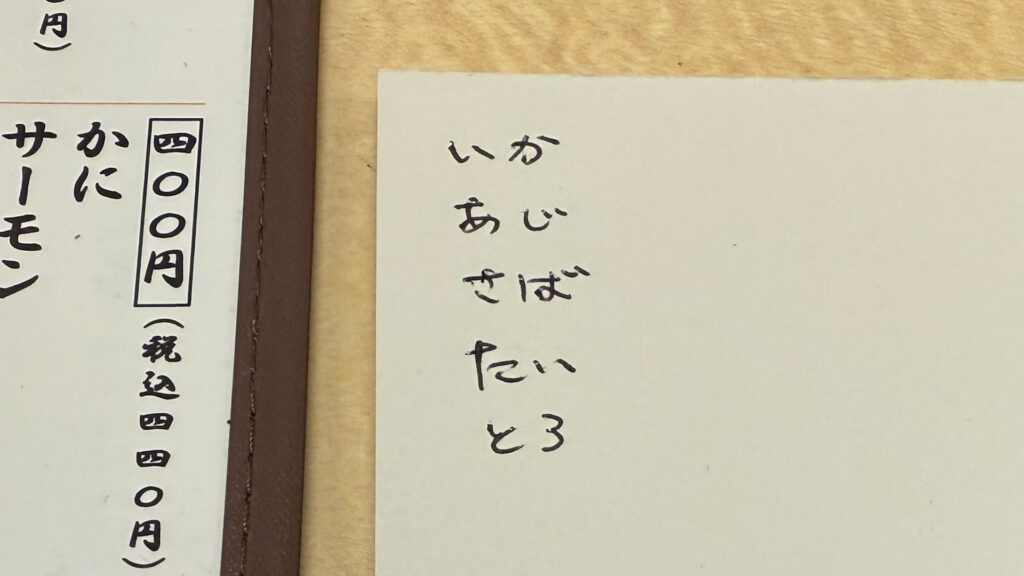 円）
四〇〇円
（税込四四〇円）
かに
サーモン
いか
あじ
さば
たい
とろ